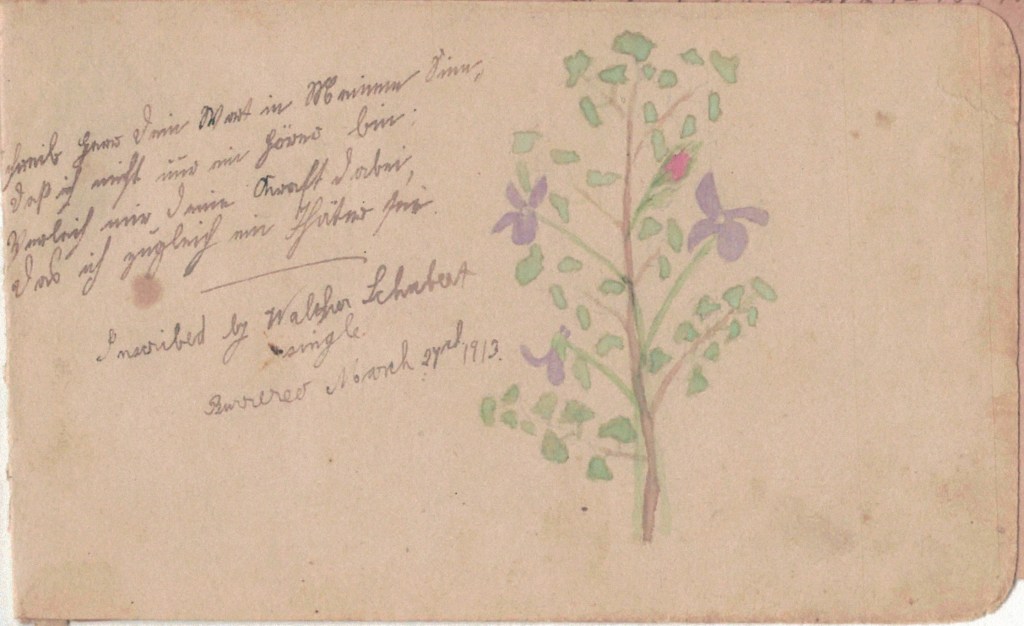 Schreib Herr dein Wort in Meinem Sinn,
daß ich nicht nur ein hörer bin.
Verleih mir deine Kraft dabei,
das ich zugleich ein Thäter sei.
Inscribed by Walther Schubert
single.
March 27rd, 1913.